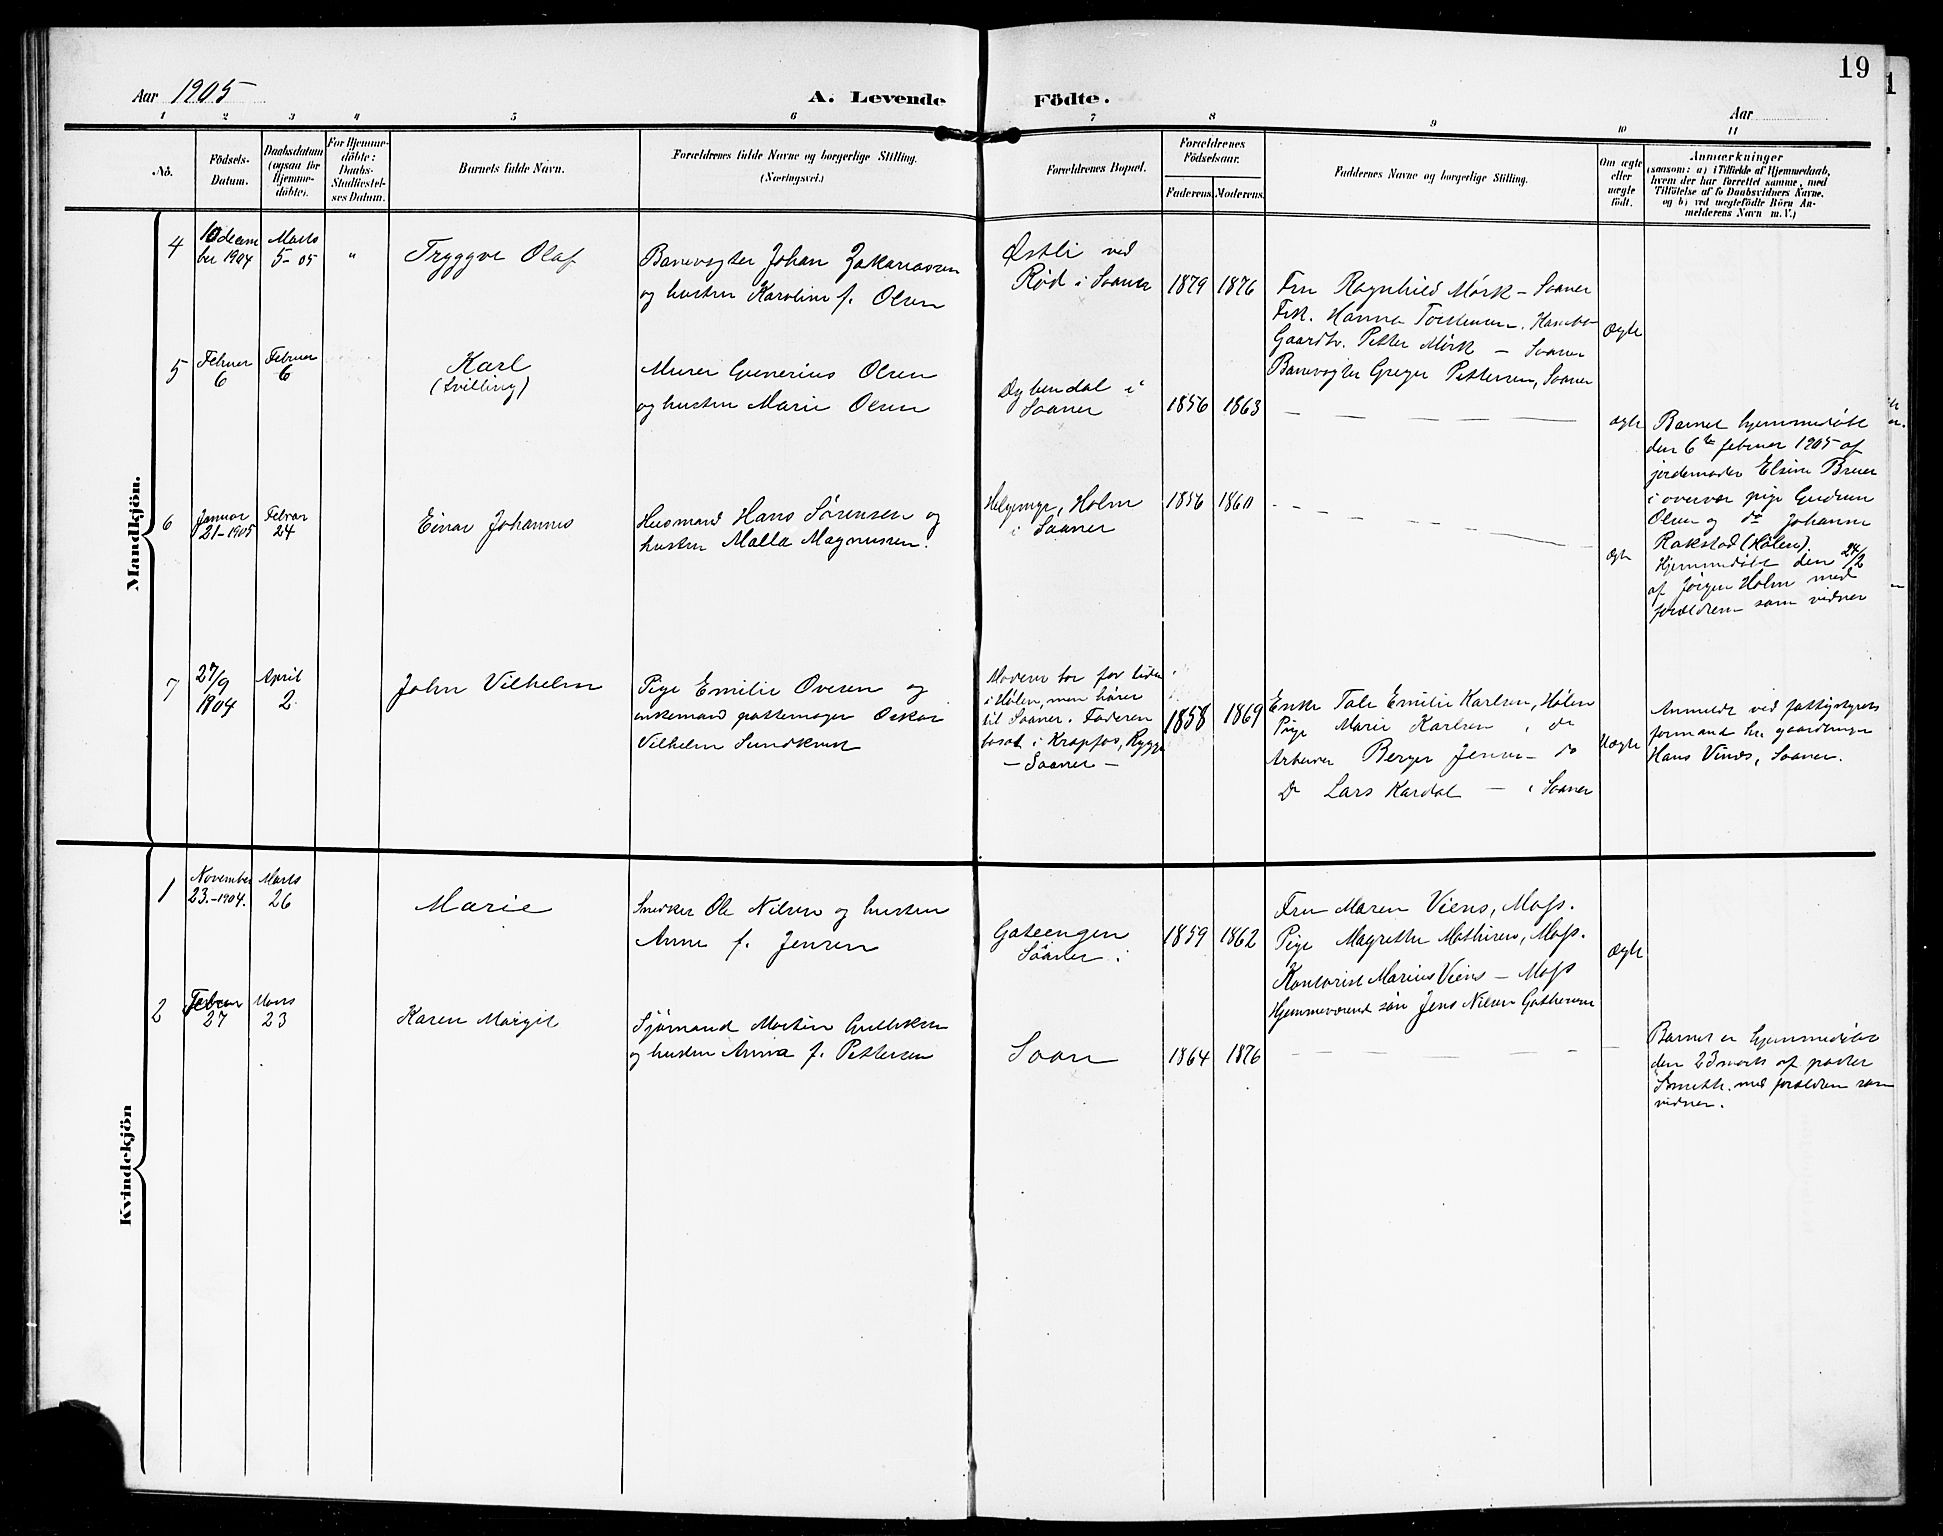 19
Aar 1905
A. Levende Födte.
Aar
1 2 3 4 5 6 7 8 9 10 11
No.
Födsels-
Datum.
Daabsdatum
(ogsaa for
Hjemme-
döbte).
For Hjemme-
döbte:
Daabs-
Stadfæstel-
ses Datum.
Barnets fulde Navn.
Forældrenes fulde Navne og borgerlige Stilling.
(Næringsvei.)
Forældrenes Bopæl.
Forældrenes
Födselsaar.
Faderens. Moderens.
Faddernes Navne og borgerlige Stilling.
Om ægte
eller
uægte
födt.
Anmærkninger
(saasom: a) i Tilfælde af Hjemmedaab,
hvem der har forrettet samme, med
Tilföielse af to Daabsvidners Navne,
og b) ved uægtefödte Börn An-
melderens Navn m. V.)
Mandkjön.
4
10 decem
ber 1904
Marts
5-05
"
Tryggve Olaf
Banevogter Johan Zakariassen
og hustru Karoline f. Olsen
Østli ved
Rød i Saaner
1879 1876
Fru Ragnhild Mørk - Saaner
Frk. Hanna
Gaardbr. Petter Mørk - Saaner
Banevogter Greger Pettersen, Saaner
Ægte
5
Februar
6
Februar
6
Karl
(tvilling)
Murer Gunerius Olsen
og hustru Marie Olsen
Dybendal i
Saaner
1856 1863
ægte
Barnet hjemmedøbt
den 6te februar 1905 af
jordemoder Elsine Bruer
i overvær pige Gudrun
Olsen og do Johanne
Rakstad (Hølen).
6
Januar
21-1905
Febrar
24
Einar Johannes
Husmand Hans Sørensen og
hustru Malla Magnussen.
Helgemyr, Holm
i Saaner
1856 1860
ægte
Hjemmedøbt den 24/2
af Jørgen Holm med
forældrene som vidner
7
27/9
1904
April
2
John Vilhelm
Pige Emilie Ovesen og
enkemand pottemager Oskar
Vilhelm Sundkvist
Moderen bor for tiden
i Hølen, men hører
til Saaner. Faderen
bosat i Krapfos, Rygge
- Saaner -
1858 1869
Enke Tale Emilie Karlsen, Hølen
Pige Marie Karlsen, do
Arbeider Berger Jensen - do
Do Lars Kardal - i Saaner
Uægte
Anmeldt ved fattigstyrets
formand hr. gaardbruger
Hans Vinæs, Saaner.
Kvindekjön
1
November
23.-1904.
Marts
26
Marie
Snedker Ole Nilsen og hustru
Anne f. Jensen
Gateengen
Såner i
1859 1862
Fru Maren Viens, Moss.
Pige Magrethe Mathisen, Moss.
Kontorist Marius Viens - Moss
Hjemmeværende søn Jens Nilsen
Ægte
2
Februar
27
Marts
23
Karen Margit
Sjømand Martin Gulliksen
og hustru Anna f. Pettersen
Soon
1864 1876
Barnet er hjemmedøbt
den 23 marts af pastor
Smith. med forældrene som
vidner.